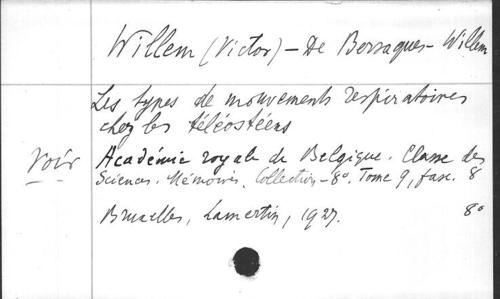 Willem (Victor) – De Bersaques-Willem
Les types de mouvements respiratoires
chez les téléostéens
voir Académie royale de Belgique. Classe des
Sciences. Mémoires. Collection – 8º. Tome 9, fasc. 8
Bruxelles, Lamertin, 1927. 8º